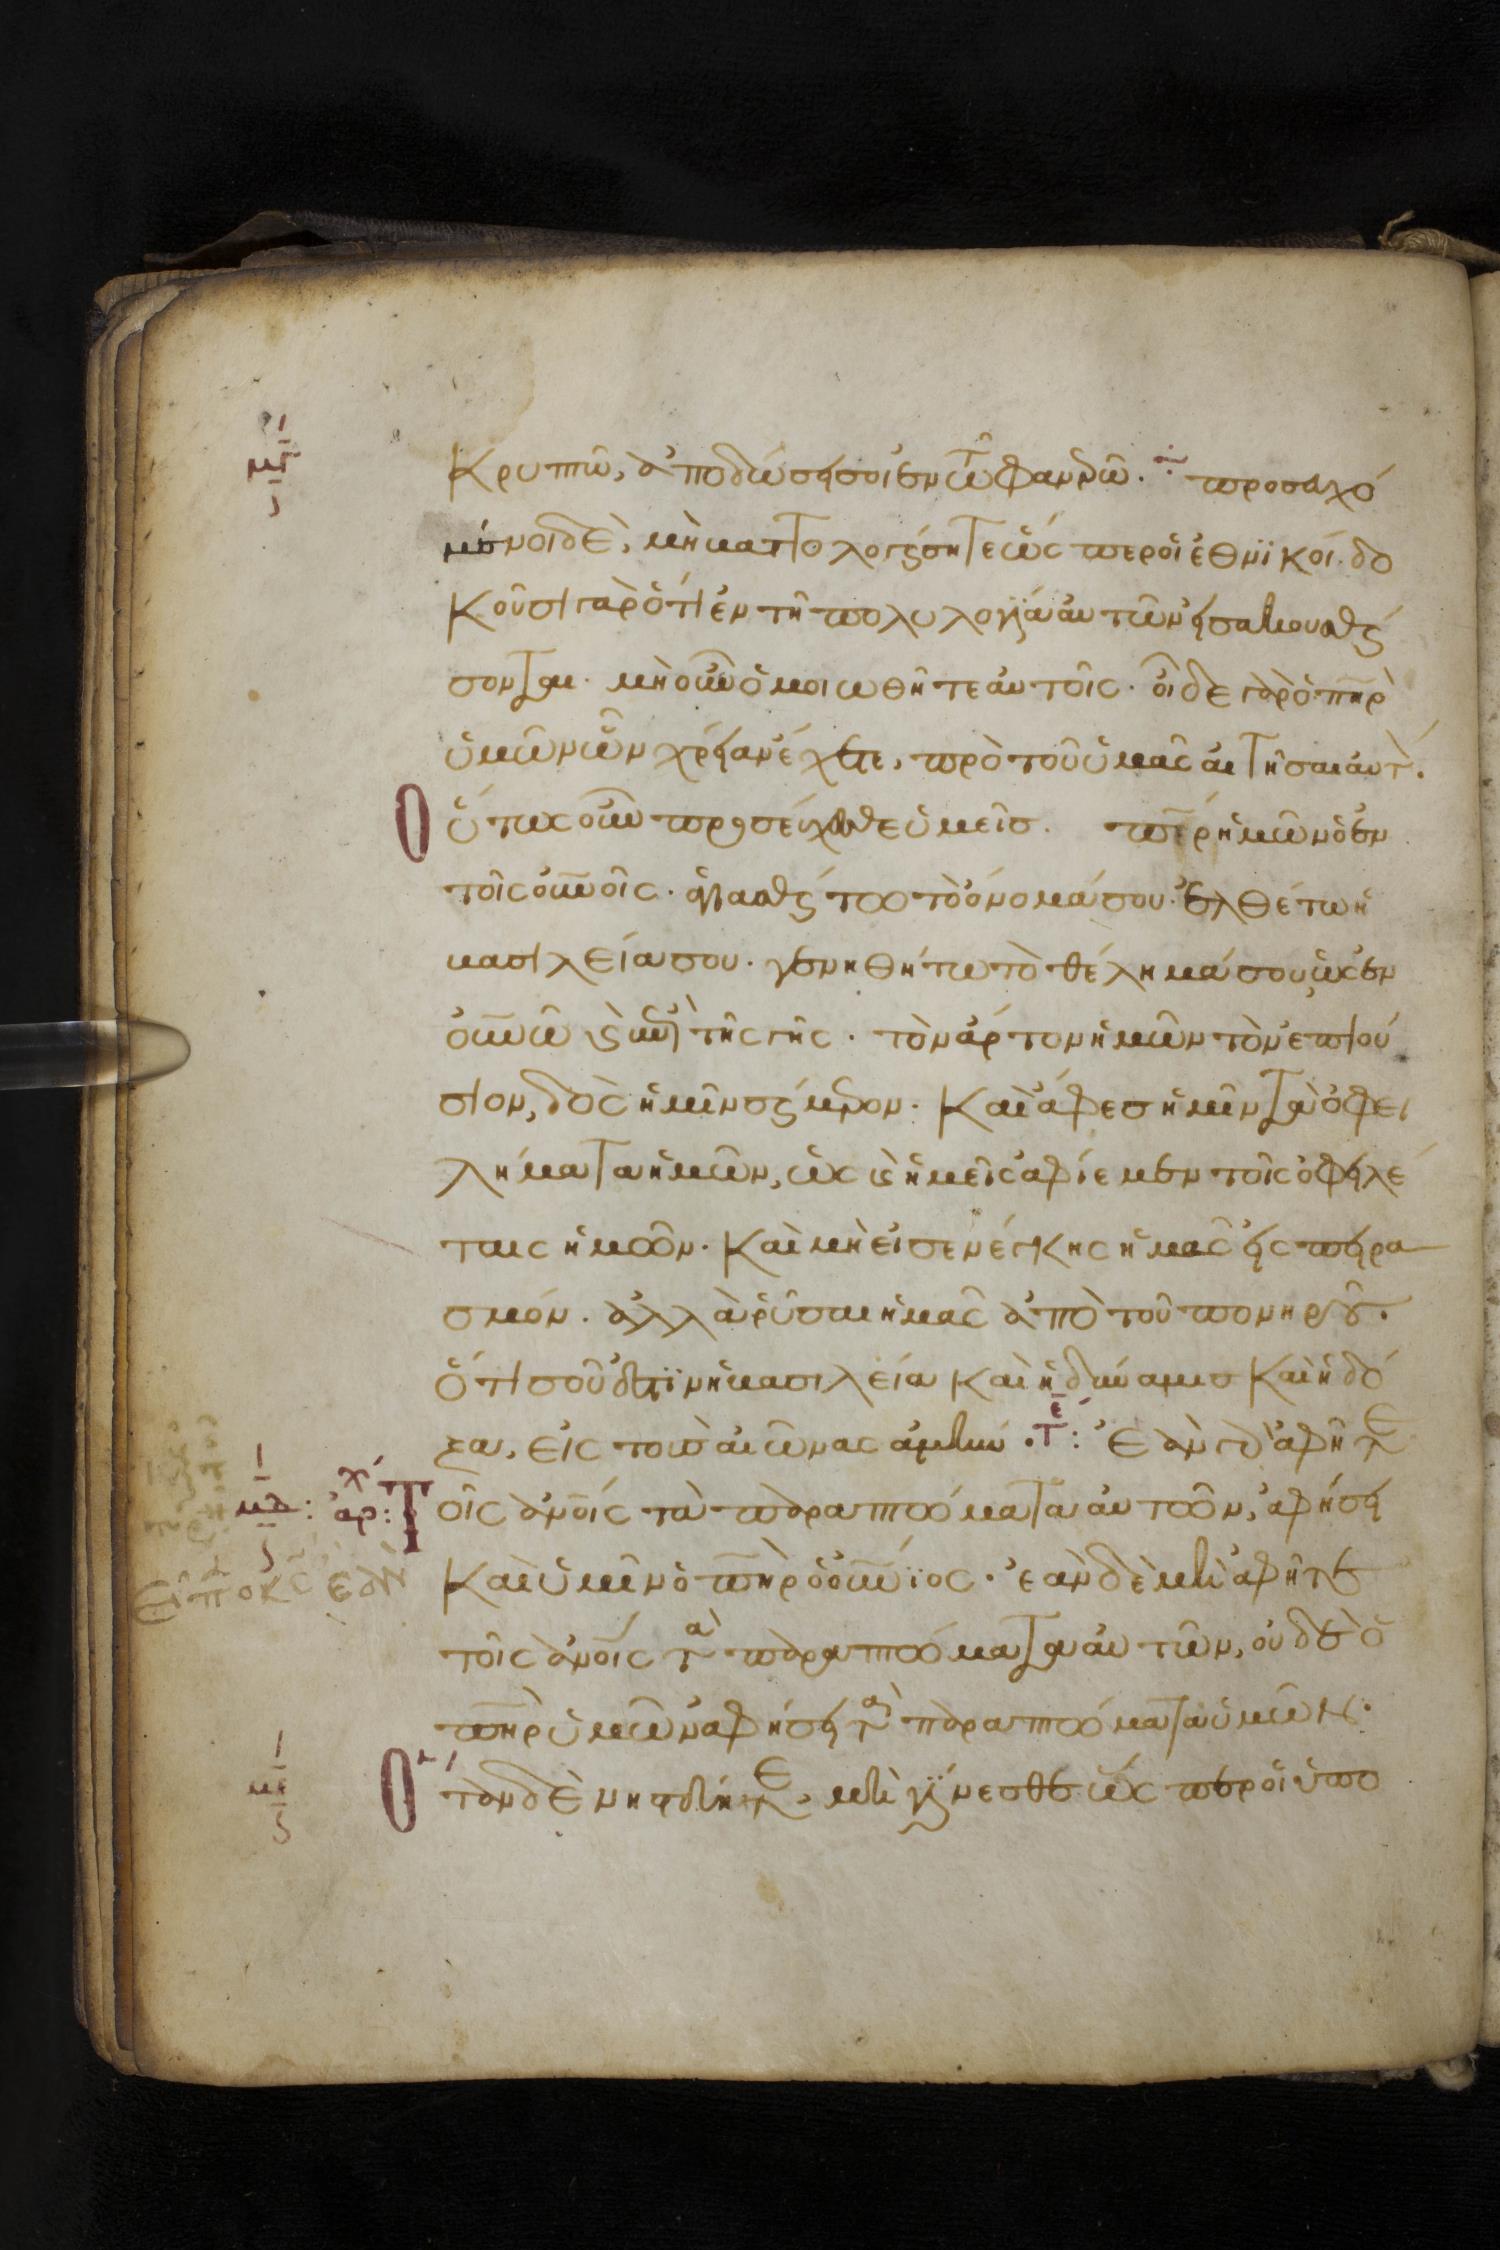 κρυπτῶ, ἀποδώσει σοι ἐν τῶ φανερῶ. προσευχό
μενοι δὲ, μὴ βαττολογήσητε ὥσπερ οἱ ἐθνϊκοί. δο
κοῦσι γὰρ ὅτι ἐν τῆ πολυλογία αὐτῶν εἰσακουσθή
σονται. μὴ οὖν ὁμοιωθῆτε αὐτοῖς. οἶδε γὰρ ὁ π̅η̅ρ̅
ὑμῶν ὧν χρείαν ἔχετε, πρὸ τοῦ ὑμᾶς αἰτῆσαι αὐτ̀.
Οὕτως οὖν προσεύχεσθε ὑμεῖς. π̅ε̅ρ̅ ἡμῶν ὁ ἐν
τοῖς ο̅υ̅ν̅οῖς. ἁγιασθήτω τὸ ὄνομά σου. ἐλθέτω ἡ
βασιλεία σου. γενηθήτω τὸ θέλημά σου, ὡς ἐν
ο̅υ̅ν̅ῶ καὶ ἐπὶ τῆς γῆς. τὸν ἄρτον ἡμῶν τὸν ἐπιού
σιον, δὸς ἡμῖν σήμερον. Καὶ ἄφες ἡμῖν τὰ ὀφει
λήματα ἡμῶν, ὡς καὶ ἡμεῖς ἀφίεμεν τοῖς ὀφειλέ
ταις ἡμῶν. Καὶ μὴ εἰσενέγκης ἡμᾶς εἰς πειρα
σμόν. ἀλλὰ ῥῦσαι ἡμᾶς ἀπὸ τοῦ πονηροῦ.
ὅτι σοῦ ἐστϊν ἡ βασιλεία καὶ ἡ δύναμις καὶ ἡ δό
ξα, εἰς τοὺς αἰῶνας ἀμήν. τε: Ἐὰν γὰρ ἀφῆτε
μδ: ἀρχ: Τοῖς ἀ̅ν̅οις τὰ παραπτώματα αὐτῶν, ἀφήσει
Εἶπ ὁ κ̅ς̅ ἐὰν
καὶ ὑμῖν ὁ π̅η̅ρ̅ ὁ ο̅υ̅ν̅ϊος. ἐὰν δὲ μὴ ἀφῆτε
τοῖς ἀ̅ν̅οις τὰ παραπτώματα αὐτῶν, οὐδὲ ὁ
π̅η̅ρ̅ ὑμῶν ἀφήσει τὰ παραπτώματα ὑμῶν.
με Ὅταν δὲ νηστεύητε, μὴ γίνεσθε ὥσπερ οἱ ὑπο